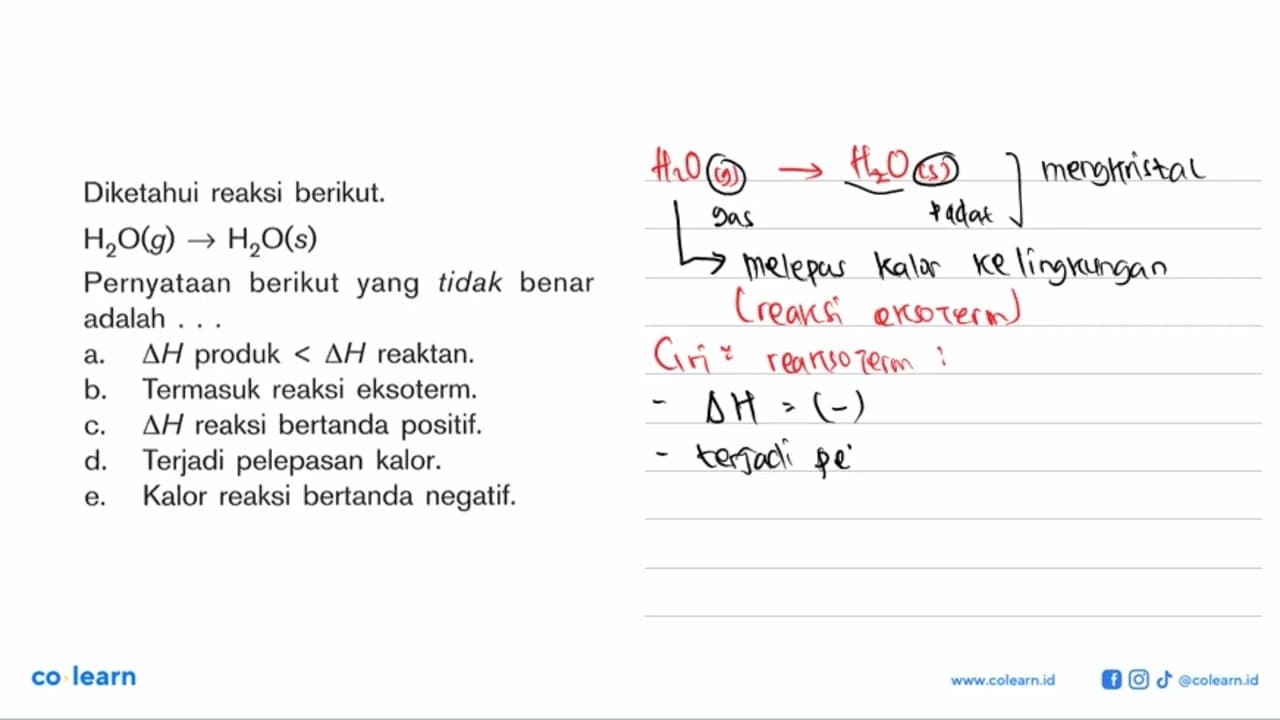 Diketahui reaksi berikut.
H₂O(g) → H₂O(s)
Pernyataan berikut yang tidak benar
adalah . . .
a. ΔH produk < ΔH reaktan.
b. Termasuk reaksi eksoterm.
c. ΔH reaksi bertanda positif.
d. Terjadi pelepasan kalor.
e. Kalor reaksi bertanda negatif.
H₂O (g) → H₂O (s) ] mengkristal
gas padat
↳ melepas kalor ke lingkungan
(reaksi eksoterm)
Ciri²
:
- ΔH = (-)
- terjadi pe
co learn
www.colearn.id @colearn.id